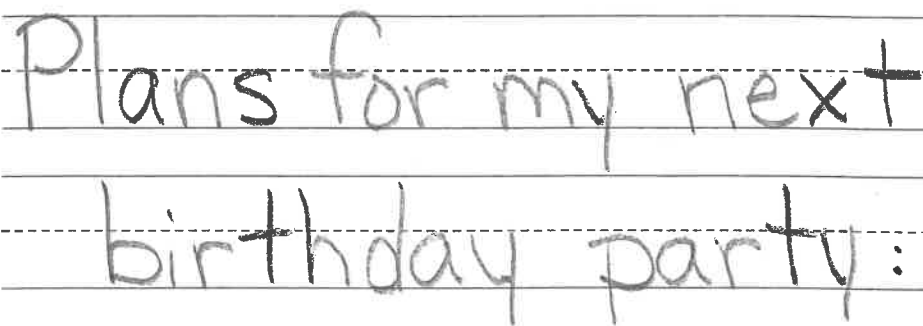 Plans for my next
birthday party: